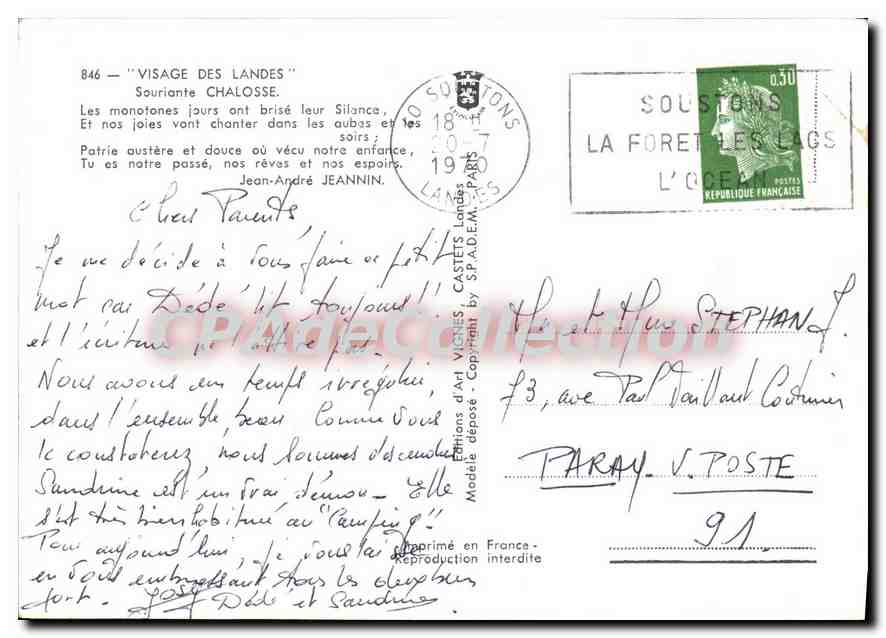 846 — "VISAGE DES LANDES"
Souriante CHALOSSE.
Les monotones jours ont brisé leur Silence,
Et nos joies vont chanter dans les aubes et les
soirs ;
Patrie austère et douce où vécu notre enfance,
Tu es notre passé, nos rêves et nos espoirs.
Jean-André JEANNIN.
40 SOUSTONS
18 H
20-7
1970
LANDES
SOUSTONS
LA FORET LES LACS
L'OCEAN
0,30
POSTES
REPUBLIQUE FRANÇAISE
Chers Parents
Je me décide à vous faire ce petit
mot car Dédé lit toujours !!
et l'écriture ne l'attire pas.
Nous avons un temps irrégulier,
dans l'ensemble, beau. Comme vous
le constaterez, nous sommes descendus
Sandrine est un vrai démon - Elle
s'est très bien habituée au "Camping".
Pour aujourd'hui, je vous laisse
en vous embrassant tous les deux bien
fort. Josy Dédé et Sandrine
Editions d'Art VIGNES, CASTETS Landes
Modèle déposé - Copyright by S.P.A.D.E.M. PARIS
Imprimé en France -
Reproduction interdite
Mr et Mme STEPHAN J.
73, ave Paul Vaillant Couturier
PARAY-V. POSTE
91.
CPAdeCollection